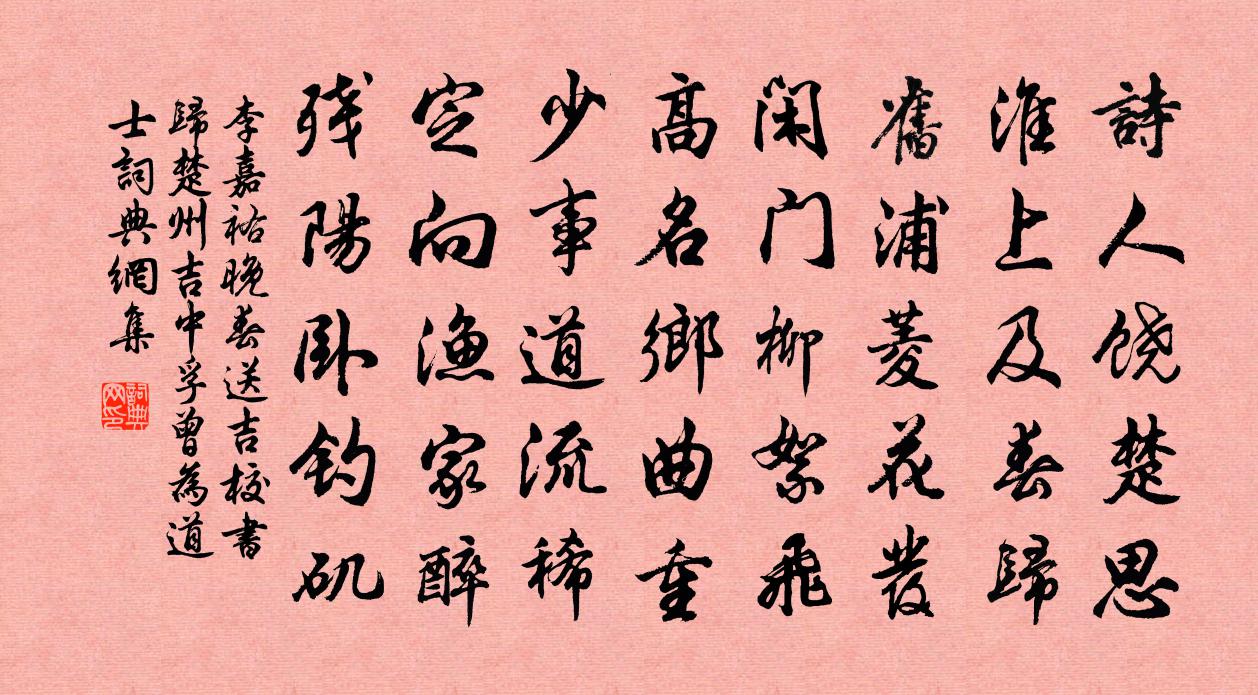 詩人饶楚思
淮上及春歸
舊浦菱花發
闲门柳絮飛
高名鄉曲重
少事道流稀
定向渔家醉
残陽卧钓矶
李嘉祐晚春送吉校書
歸楚州吉中孚曾為道
士詞典網集
詞典网印